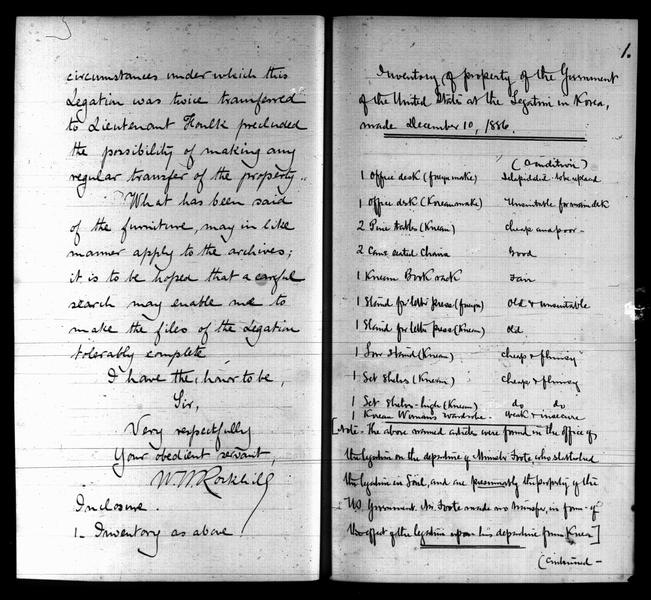 circumstances under which this
Legation was twice transferred
to Lieutenant Foulk precluded
the possibility of making any
regular transfer of the property.
What has been said
of the furniture, may in like
manner apply to the archives;
it is to be hoped that a careful
search may enable me to
make the files of the Legation
tolerably complete.
I have the honor to be,
Sir,
Very respectfully
Your obedient servant,
W W Rockhill
Inclosure.
1- Inventory as above.
1.
Inventory of property of the Government
of the United States at the Legation in Korea,
made December 10, 1886.
(Condition)
1 Office desk (foreign make) Dilapidated. to be replaced
1 office desk (Korean make) Unsuitable for main desk
2 Pine tables (Korean) cheap and poor -
2 Cane seated Chairs Good
1 Korean Book rack Fair
1 Stand for letter press (foreign) Old & unsuitable
1 Stand for letter press (Korean) Old.
1 Low Stand (Korean) cheap & flimsy
1 Set Shelves (Korean) cheap & flimsy
1 Set Shelves - high (Korean) do do
1 Korean Woman's wardrobe. Weak & insecure
[Note - The above named articles were found in the office of
the legation on the departure of Minister Foote, who established
the legation in Söul, and are presumably the property of the
U.S. Government. Mr. Foote made no transfer, in form of
the effect of the legation upon his departure from Korea]
(Continued -